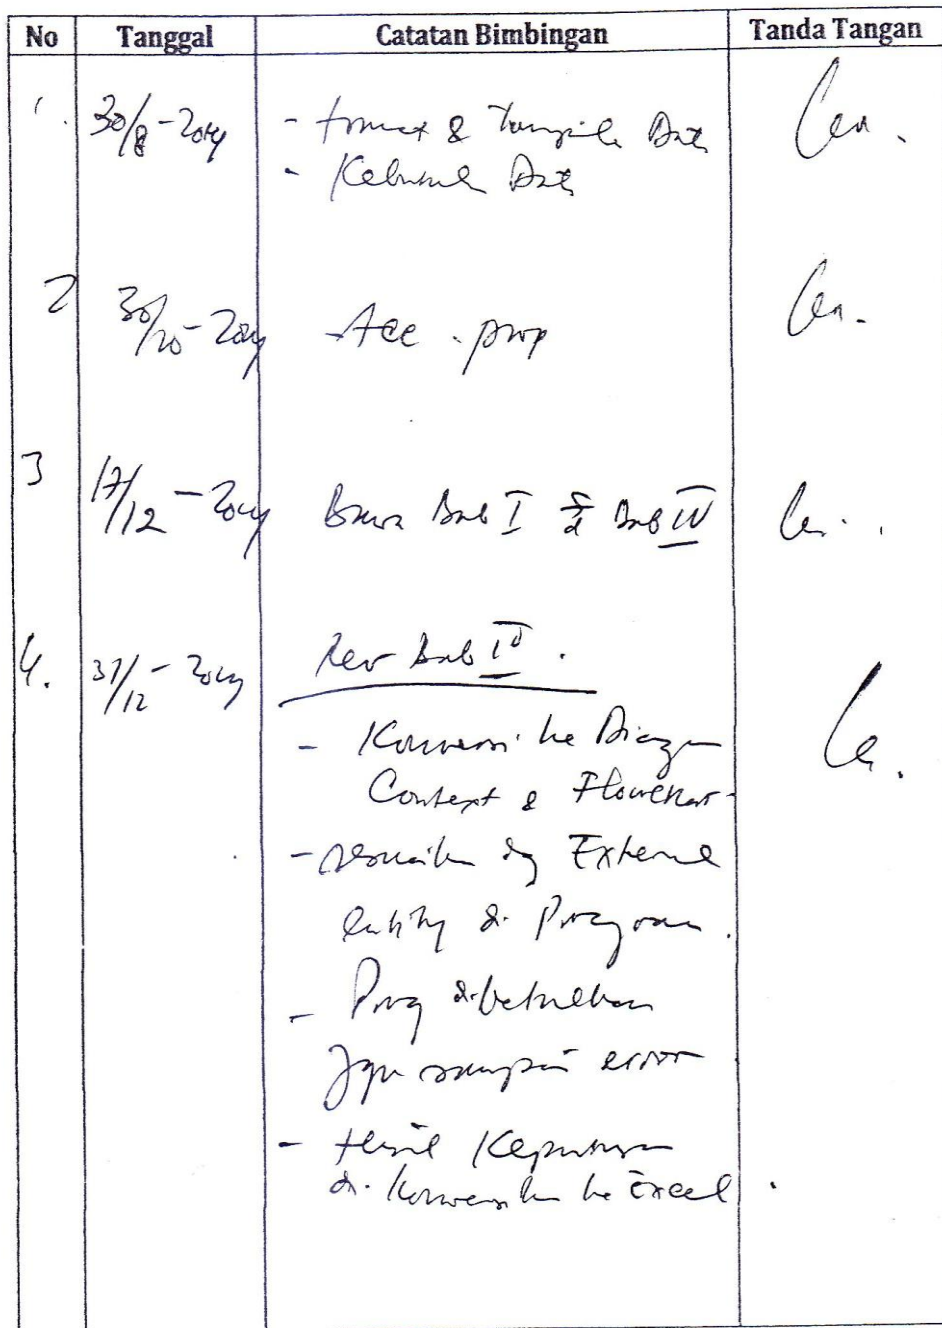 No Tanggal Catatan Bimbingan Tanda Tangan
1. 30/8-2014 - format & Tampila Data
- Kebutuhan Data
2 30/10-2014 - Acc. prop
3 17/12-2014 Bab I s/d Bab IV
4. 31/12-2014 Rev Bab IV.
- Konversi ke Diagram
Context & Flowchart
- sesuaikan dg External
entity di Program.
- Prog dibetulkan
Jgn sampai error
- Hasil Keputusan
di Konversikan ke Excel.